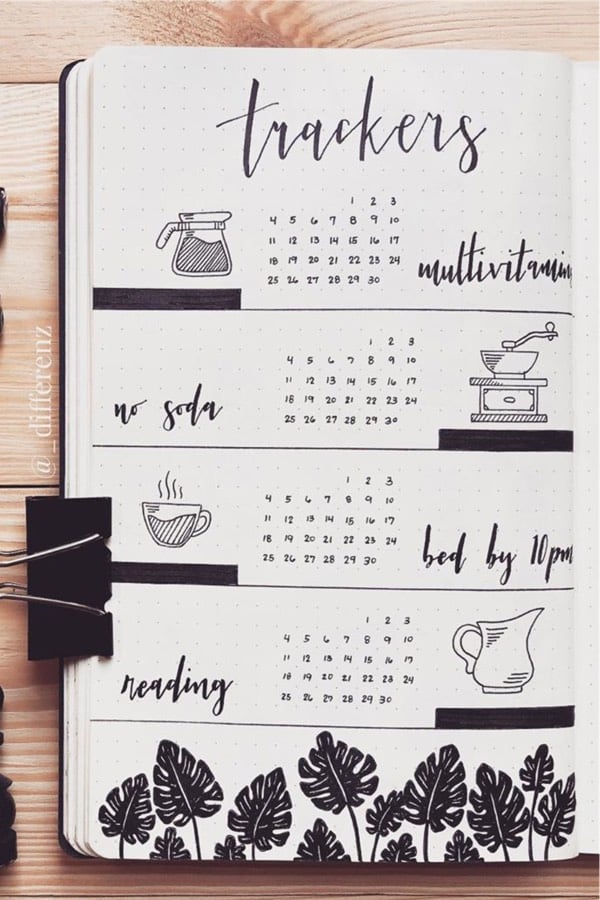 trackers
1 2 3
4 5 6 7 8 9 10
11 12 13 14 15 16 17
18 19 20 21 22 23 24
25 26 27 28 29 30
multivitamin
1 2 3
4 5 6 7 8 9 10
11 12 13 14 15 16 17
18 19 20 21 22 23 24
25 26 27 28 29 30
no soda
1 2 3
4 5 6 7 8 9 10
11 12 13 14 15 16 17
18 19 20 21 22 23 24
25 26 27 28 29 30
bed by 10pm
1 2 3
4 5 6 7 8 9 10
11 12 13 14 15 16 17
18 19 20 21 22 23 24
25 26 27 28 29 30
reading
@_differenz